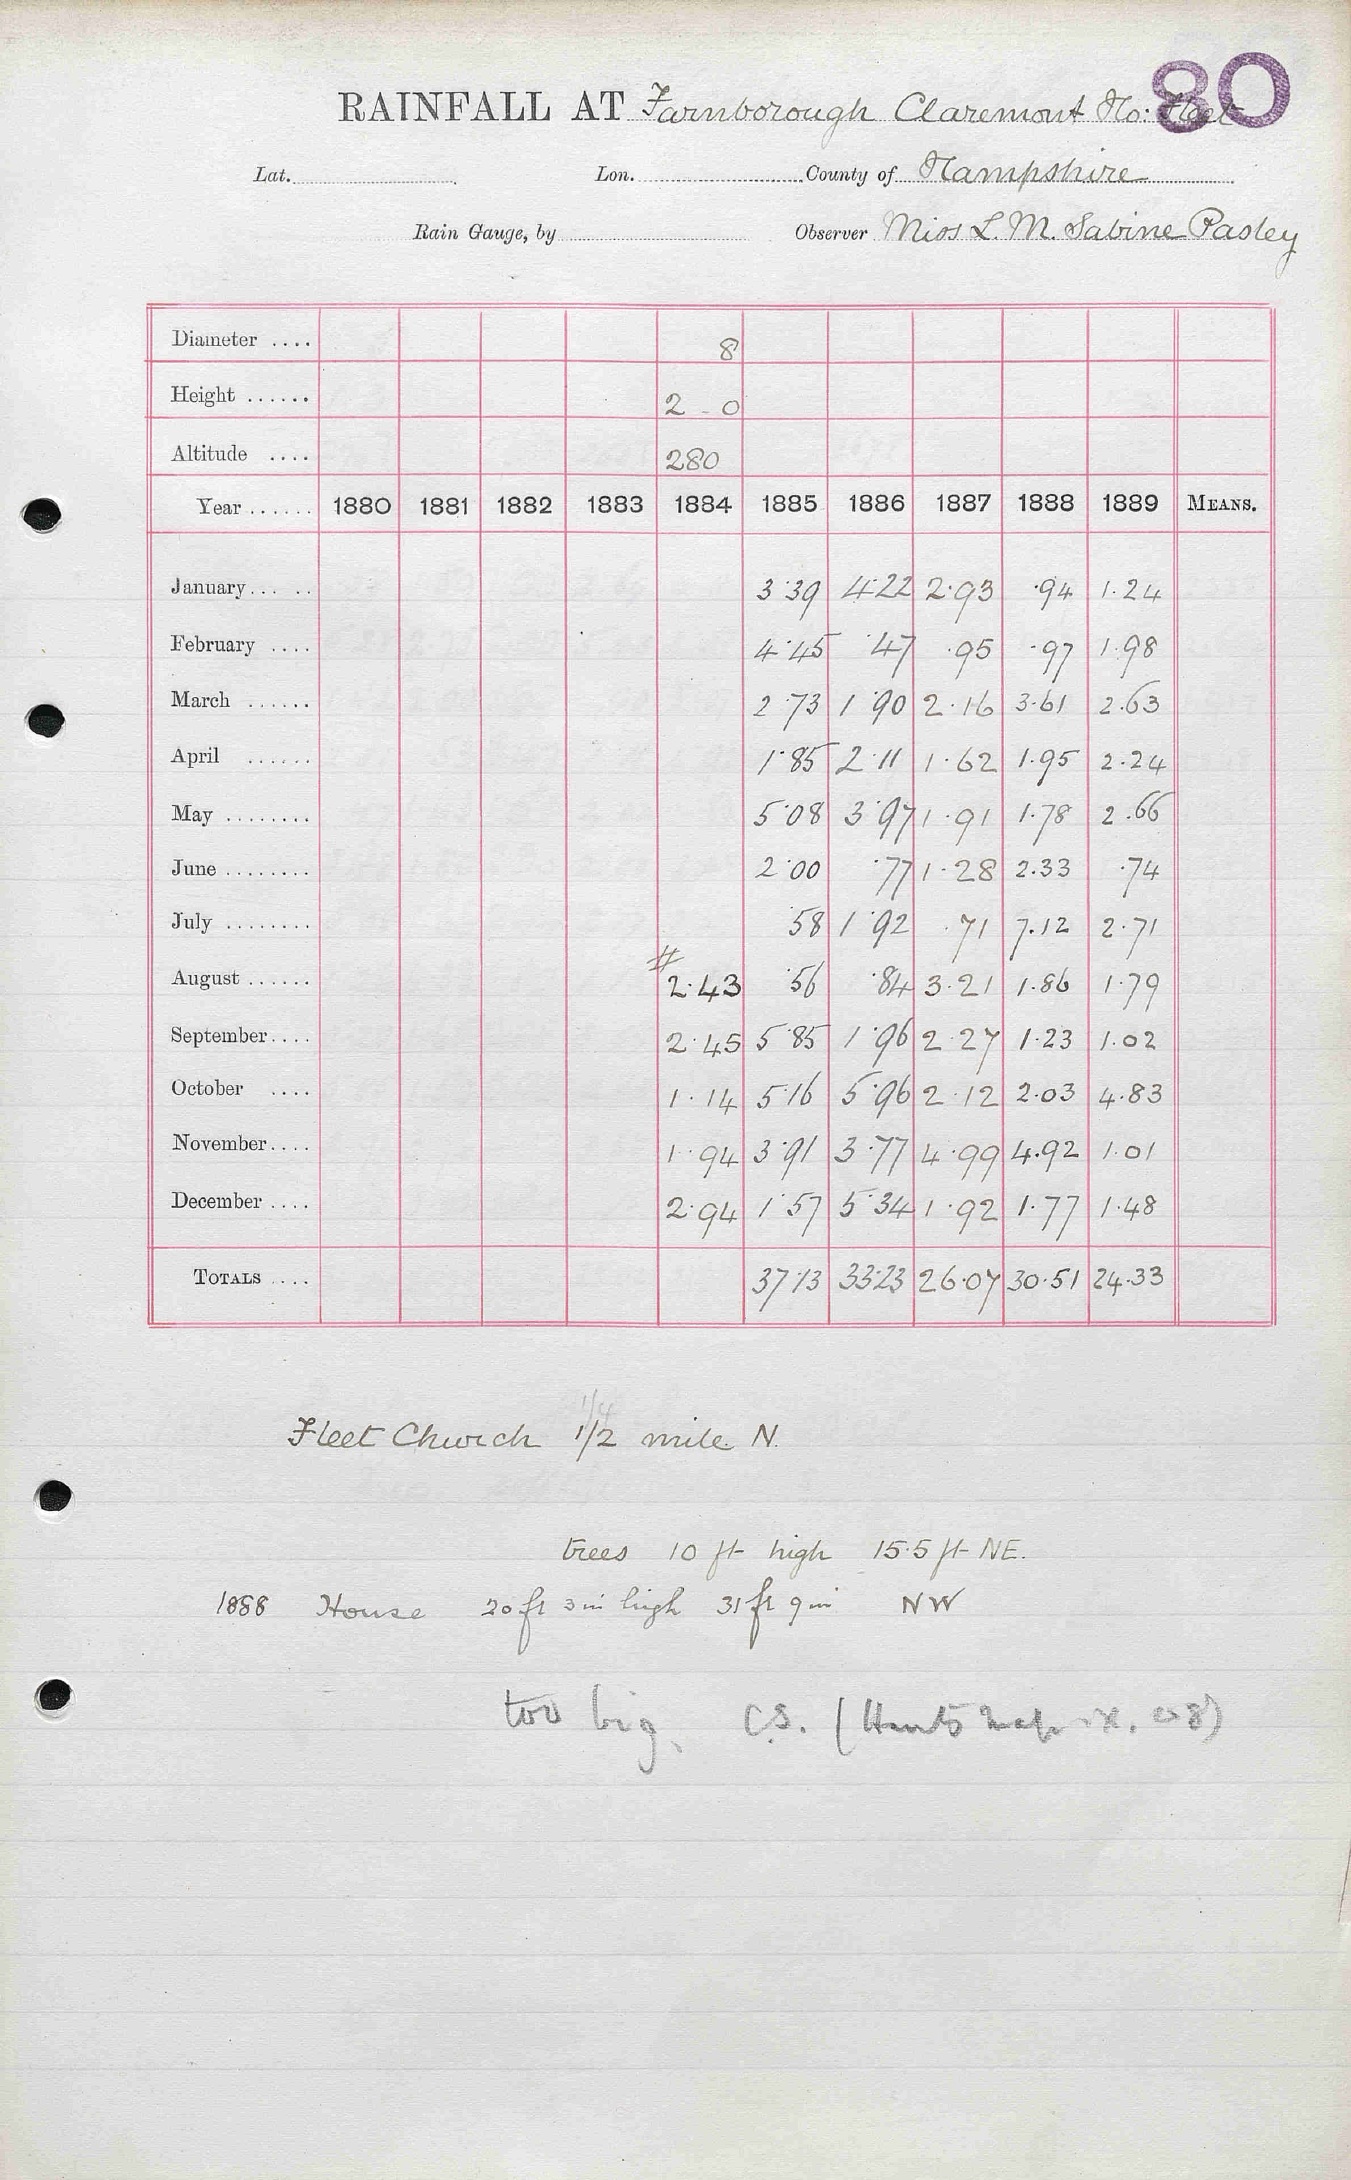 80
RAINFALL AT Farnborough Claremont Ho: Fleet
Lat. Lon. County of Hampshire
Rain Gauge, by Observer Miss L. M. Sabine Pasley
Diameter .... 8
Height ...... 2 - 0
Altitude .... 280
Year ...... 1880 1881 1882 1883 1884 1885 1886 1887 1888 1889 MEANS.
January... .. 3·39 4·22 2·93 ·94 1·24
February .... 4·45 ·47 ·95 ·97 1·98
March ...... 2·73 1·90 2·16 3·61 2·63
April ...... 1·85 2·11 1·62 1·95 2·24
May ........ 5·08 3·97 1·91 1·78 2·66
June ........ 2·00 ·77 1·28 2·33 ·74
July ........ ·58 1·92 ·71 7·12 2·71
#
August ...... 2·43 ·56 ·84 3·21 1·86 1·79
September.... 2·45 5·85 1·96 2·27 1·23 1·02
October .... 1·14 5·16 5·96 2·12 2·03 4·83
November.... 1·94 3·91 3·77 4·99 4·92 1·01
December .... 2·94 1·57 5·34 1·92 1·77 1·48
TOTALS .... 37·13 33·23 26·07 30·51 24·33
1/4
Fleet Church 1/2 mile N.
trees 10 ft high 15·5 ft NE.
1888 House 20 ft 3 in high 31 ft 9 in NW
too big. C.S. (Hants map ix.